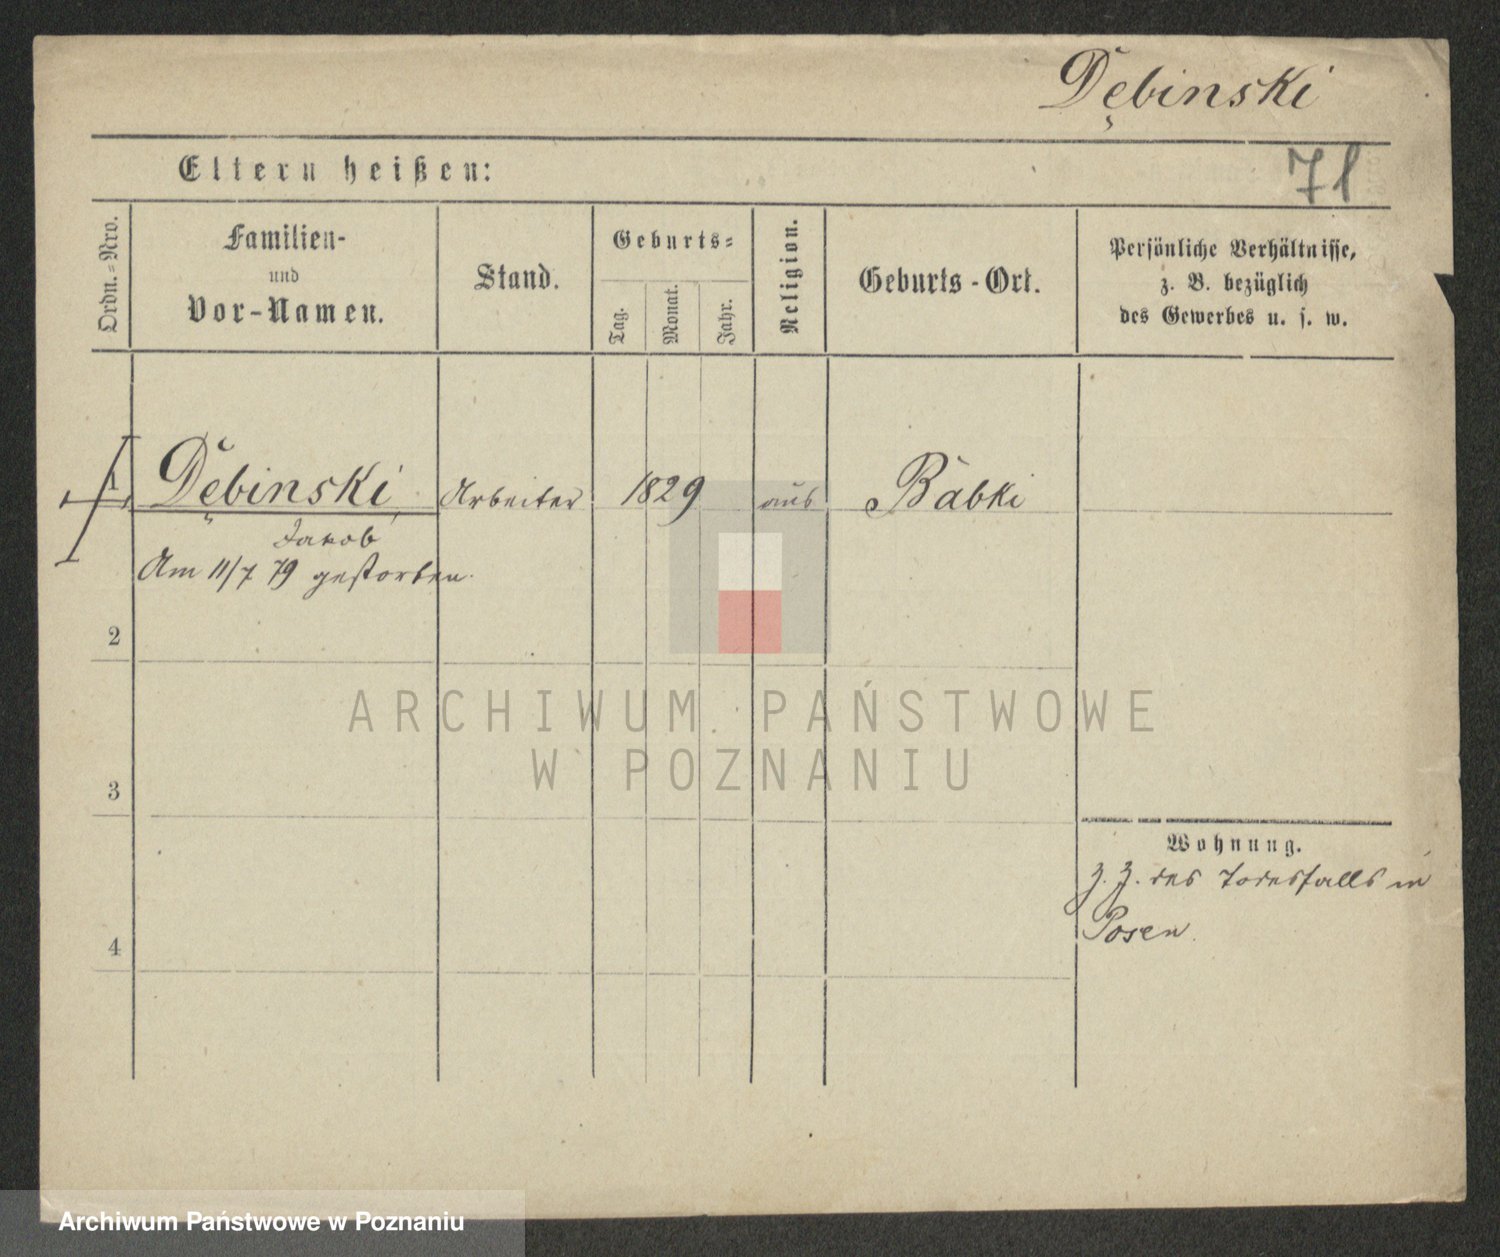 Dębinski
71
Eltern heißen:
Ordn.=Nro.
Familien-
und
Vor-Namen.
Stand.
Geburts=
Tag.
Monat.
Jahr.
Religion.
Geburts-Ort.
Persönliche Verhältnisse,
z. B. bezüglich
des Gewerbes u. s. w.
1 Dębinski, Arbeiter 1829 aus Babki
Jakob
Am 11/7 79 gestorben.
2
3
4
Wohnung.
Z. Z. des Todesfalls in
Posen.
ARCHIWUM PAŃSTWOWE
W POZNANIU
Archiwum Państwowe w Poznaniu